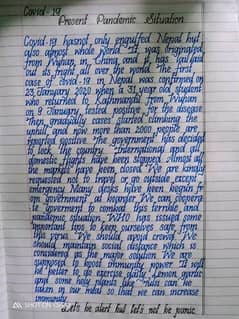 Covid-19
Present Pandemic Situation
Covid-19 hasnot only engulfed Nepal but
also almost whole world. It was originated
from Wuhan, in China and it has laid
out its fright all over the world. The first
case of covid-19 in Nepal was confirmed on
23 January 2020 when a 31 year old student
who returned to Kathmandu from Wuhan
on 9 January, tested positive for the disease
Then gradually cases started climbing the
uphill and now more than 2000 people are
reported positive. The government has decided
to lock the country. International and all
domestic flights have been stopped. Almost all
the markets have been closed. We are kindly
requested not to imply or go outside except
emergency. Many desks have been begun from
government at boarder. We can cooperate
to government to combat this terrible and
pandemic situation. WHO has issued some
important tips to keep ourselves safe from
this virus. We should avoid crowd. We
should maintain social distance which is
considered as the major solution. We are
supposed to boost immunity power. It will
be better to do exercise daily. Lemon, garlic
and some holy plants like tulsi can be
taken in our meal so that we can increase
immunity.
Let's be alert but let's not be panic.
SHOT ON